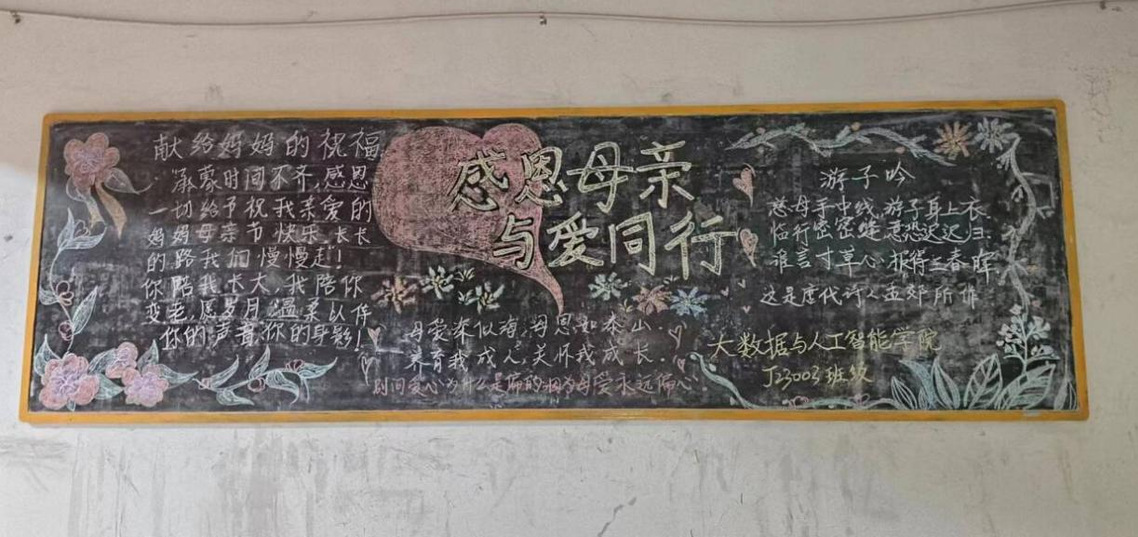 献给妈妈的祝福
承蒙时间不弃,感恩
一切给予祝我亲爱的
妈妈母亲节快乐,长长
的路我们慢慢走!
你陪我长大,我陪你
变老,愿岁月温柔以待
你的声音,你的身影!
感恩母亲
与爱同行
母爱深似海,母恩如泰山.
养育我成人,关怀我成长.
别问爱心为什么是偏的,因为母爱永远偏心
游子吟
慈母手中线,游子身上衣
临行密密缝,意恐迟迟归.
谁言寸草心,报得三春晖
这是唐代诗人孟郊所作
大数据与人工智能学院
J23003班级